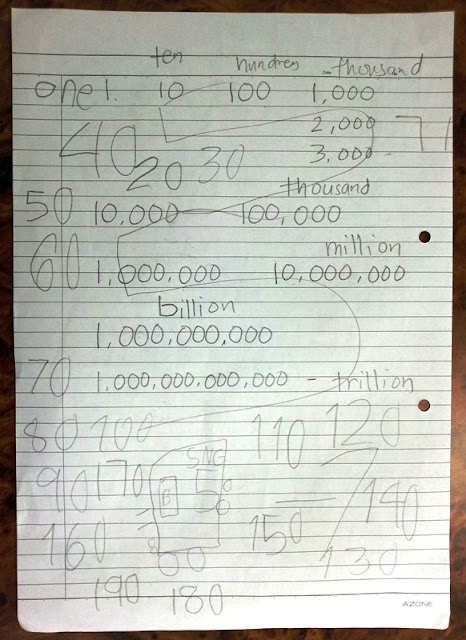 ten hundred thousand
one 1. 10 100 1,000
2,000 71
40 20 30 3,000
thousand
50 10,000 100,000
million
60 1,000,000 10,000,000
billion
1,000,000,000
70 1,000,000,000,000 - trillion
80 100 110 120
90 170 140
B 5
160 150
130
190 180
AZONE